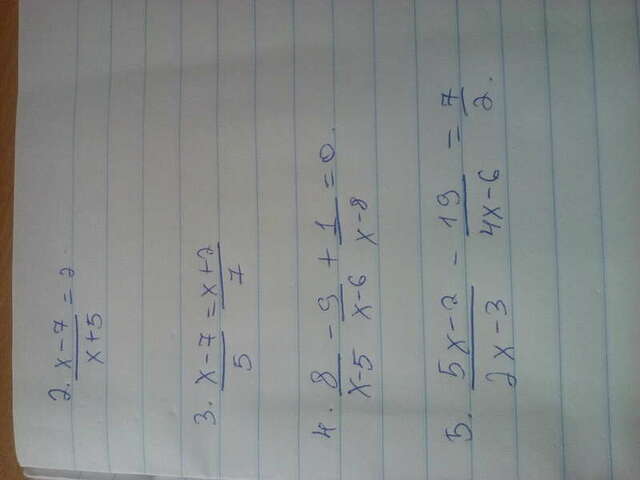 2. (x-7)/(x+5) = 2
3. (x-7)/5 = (x+2)/7
4. 8/(x-5) - 9/(x-6) + 1/(x-8) = 0.
5. (5x-2)/(2x-3) - 19/(4x-6) = 7/2.